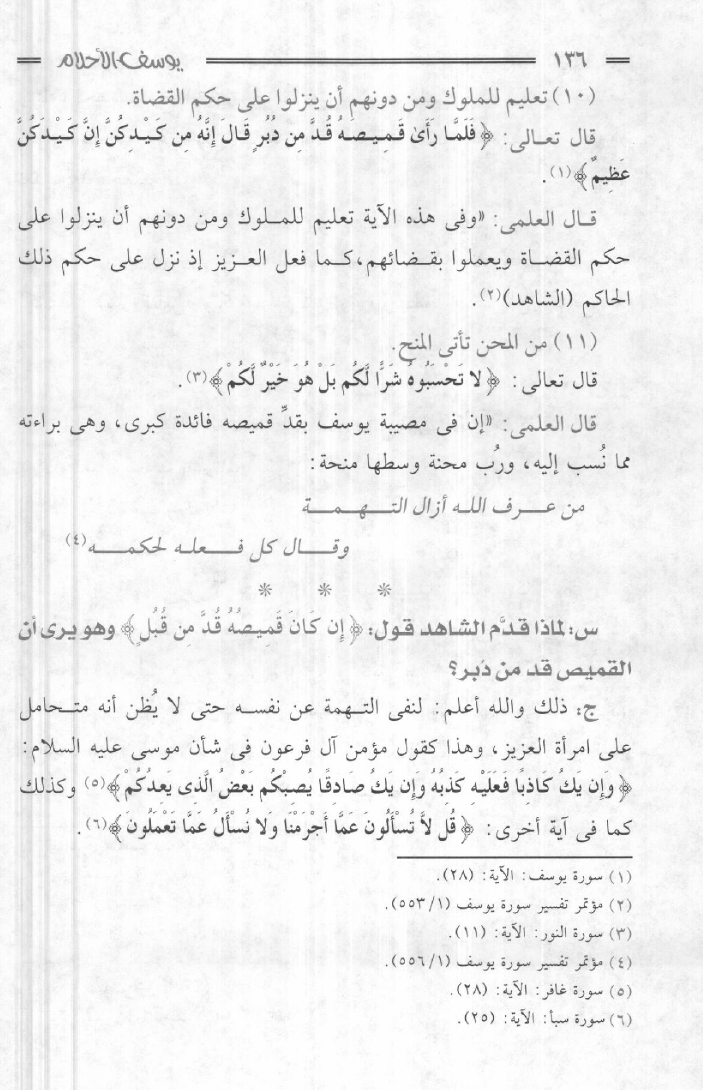 ١٣٦ يوسف الأحلام
(١٠) تعليم للملوك ومن دونهم أن ينزلوا على حكم القضاة.
قال تعالى: ﴿ فَلَمَّا رَأَىٰ قَمِيصَهُ قُدَّ مِن دُبُرٍ قَالَ إِنَّهُ مِن كَيْدِكُنَّ إِنَّ كَيْدَكُنَّ
عَظِيمٌ ﴾(١).
قال العلمى: «وفى هذه الآية تعليم للملوك ومن دونهم أن ينزلوا على
حكم القضاة ويعملوا بقضائهم، كما فعل العزيز إذ نزل على حكم ذلك
الحاكم (الشاهد)(٢).
(١١) من المحن تأتى المنح.
قال تعالى: ﴿ لا تَحْسَبُوهُ شَرًّا لَّكُم بَلْ هُوَ خَيْرٌ لَّكُمْ ﴾(٣).
قال العلمى: «إن فى مصيبة يوسف بقدِّ قميصه فائدة كبرى، وهى براءته
مما نُسب إليه، ورُب محنة وسطها منحة:
من عرف الله أزال التهمة
وقال كل فعله لحكمه(٤)
* * *
س: لماذا قدَّم الشاهد قول: ﴿ إِن كَانَ قَمِيصُهُ قُدَّ مِن قُبُلٍ ﴾ وهو يرى أن
القميص قد من دُبر؟
ج: ذلك والله أعلم: لنفى التهمة عن نفسه حتى لا يُظن أنه متحامل
على امرأة العزيز، وهذا كقول مؤمن آل فرعون فى شأن موسى عليه السلام:
﴿ وَإِن يَكُ كَاذِبًا فَعَلَيْهِ كَذِبُهُ وَإِن يَكُ صَادِقًا يُصِبْكُم بَعْضُ الَّذِى يَعِدُكُمْ ﴾(٥) وكذلك
كما فى آية أخرى: ﴿ قُل لاَّ تُسْأَلُونَ عَمَّا أَجْرَمْنَا وَلا نُسْأَلُ عَمَّا تَعْمَلُونَ ﴾(٦).
(١) سورة يوسف: الآية: (٢٨).
(٢) مؤتمر تفسير سورة يوسف (١/ ٥٥٣).
(٣) سورة النور: الآية: (١١).
(٤) مؤتمر تفسير سورة يوسف (١/ ٥٥٦).
(٥) سورة غافر: الآية: (٢٨).
(٦) سورة سبأ: الآية: (٢٥).